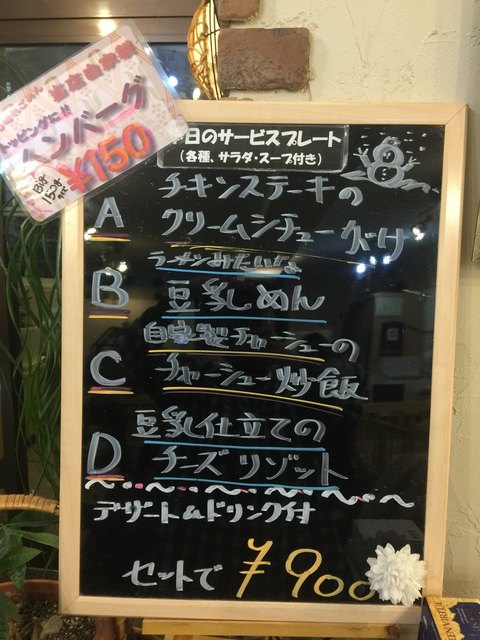 当店自家製
トッピングに!!
ハンバーグ
¥150
本日のサービスプレート
(各種、サラダ・スープ付き)
A チキンステーキの
クリームシチューがけ
ラーメンみたいな
B 豆乳めん
自家製チャーシューの
C チャーシュー炒飯
豆乳仕立ての
D チーズリゾット
デザート&ドリンク付
セットで ¥900